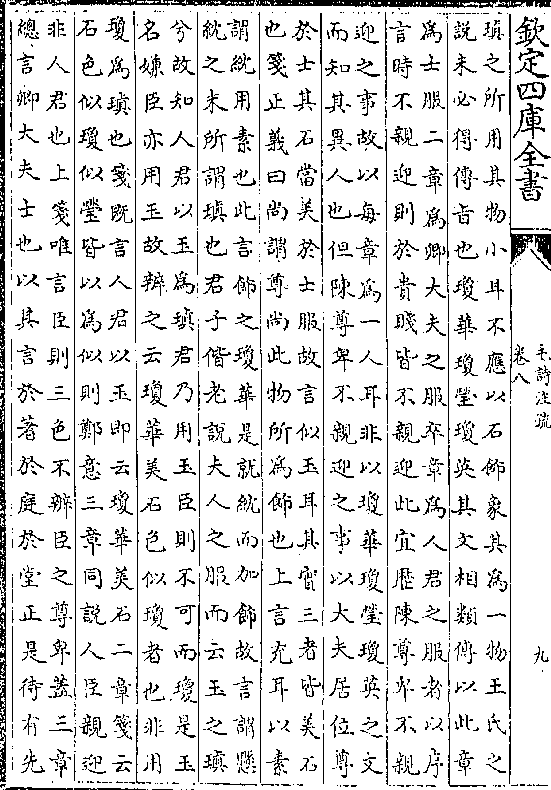 欽定四庫全書
毛詩注疏
卷八
九
瑱之所用其物小耳不應以石飾象其爲一物王氏之
說未必得傳旨也瓊華瓊瑩瓊英其文相類傳以此章
爲士服二章爲卿大夫之服卒章爲人君之服者以序
言時不親迎則於貴賤皆不親迎此宜歷陳尊卑不親
迎之事故以每章爲一人耳非以瓊華瓊瑩瓊英之文
而知其異人也但陳尊卑不親迎之事以大夫居位尊
於士其石當美於士服故言似玉耳其實三者皆美石
也箋正義曰尚謂尊尚此物所爲飾也上言充耳以素
謂紞用素也此言飾之瓊華是就紞而加飾故言謂懸
紞之末所謂瑱也君子偕老說夫人之服而云玉之瑱
兮故知人君以玉爲瑱君乃用玉臣則不可而瓊是玉
名嫌臣亦用玉故辨之云瓊華美石色似瓊者也非用
瓊爲瑱也箋旣言人君以玉即云瓊華美石二章箋云
石色似瓊似瑩皆以爲似則鄭意三章同說人臣親迎
非人君也上箋唯言臣則三色不辨臣之尊卑蓋三章
總言卿大夫士也以其言於著於庭於堂正是待有先